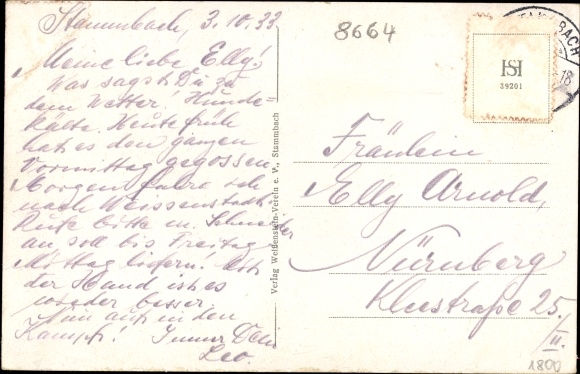 Stammbach, 3.10.33
Meine liebe Elly!
Was sagst Du zu
dem Wetter! Hunde
kälte. Heute früh
hat es den ganzen
Vormittag gegossen.
Morgen fahre ich
nach Weissenstadt.
Rufe bitte m. Schneider
an, soll bis Freitag
Mittag liefern! Mit
der Hand ist es
wieder besser.
Nun auf in den
Kampf! Immer Dein
Leo.
Verlag Weißenstein-Verein e. V., Stammbach
8664
BACH
18
HSH
39201
Fräulein
Elly Arnold,
Nürnberg
Kleestraße 25.
/II.
1800